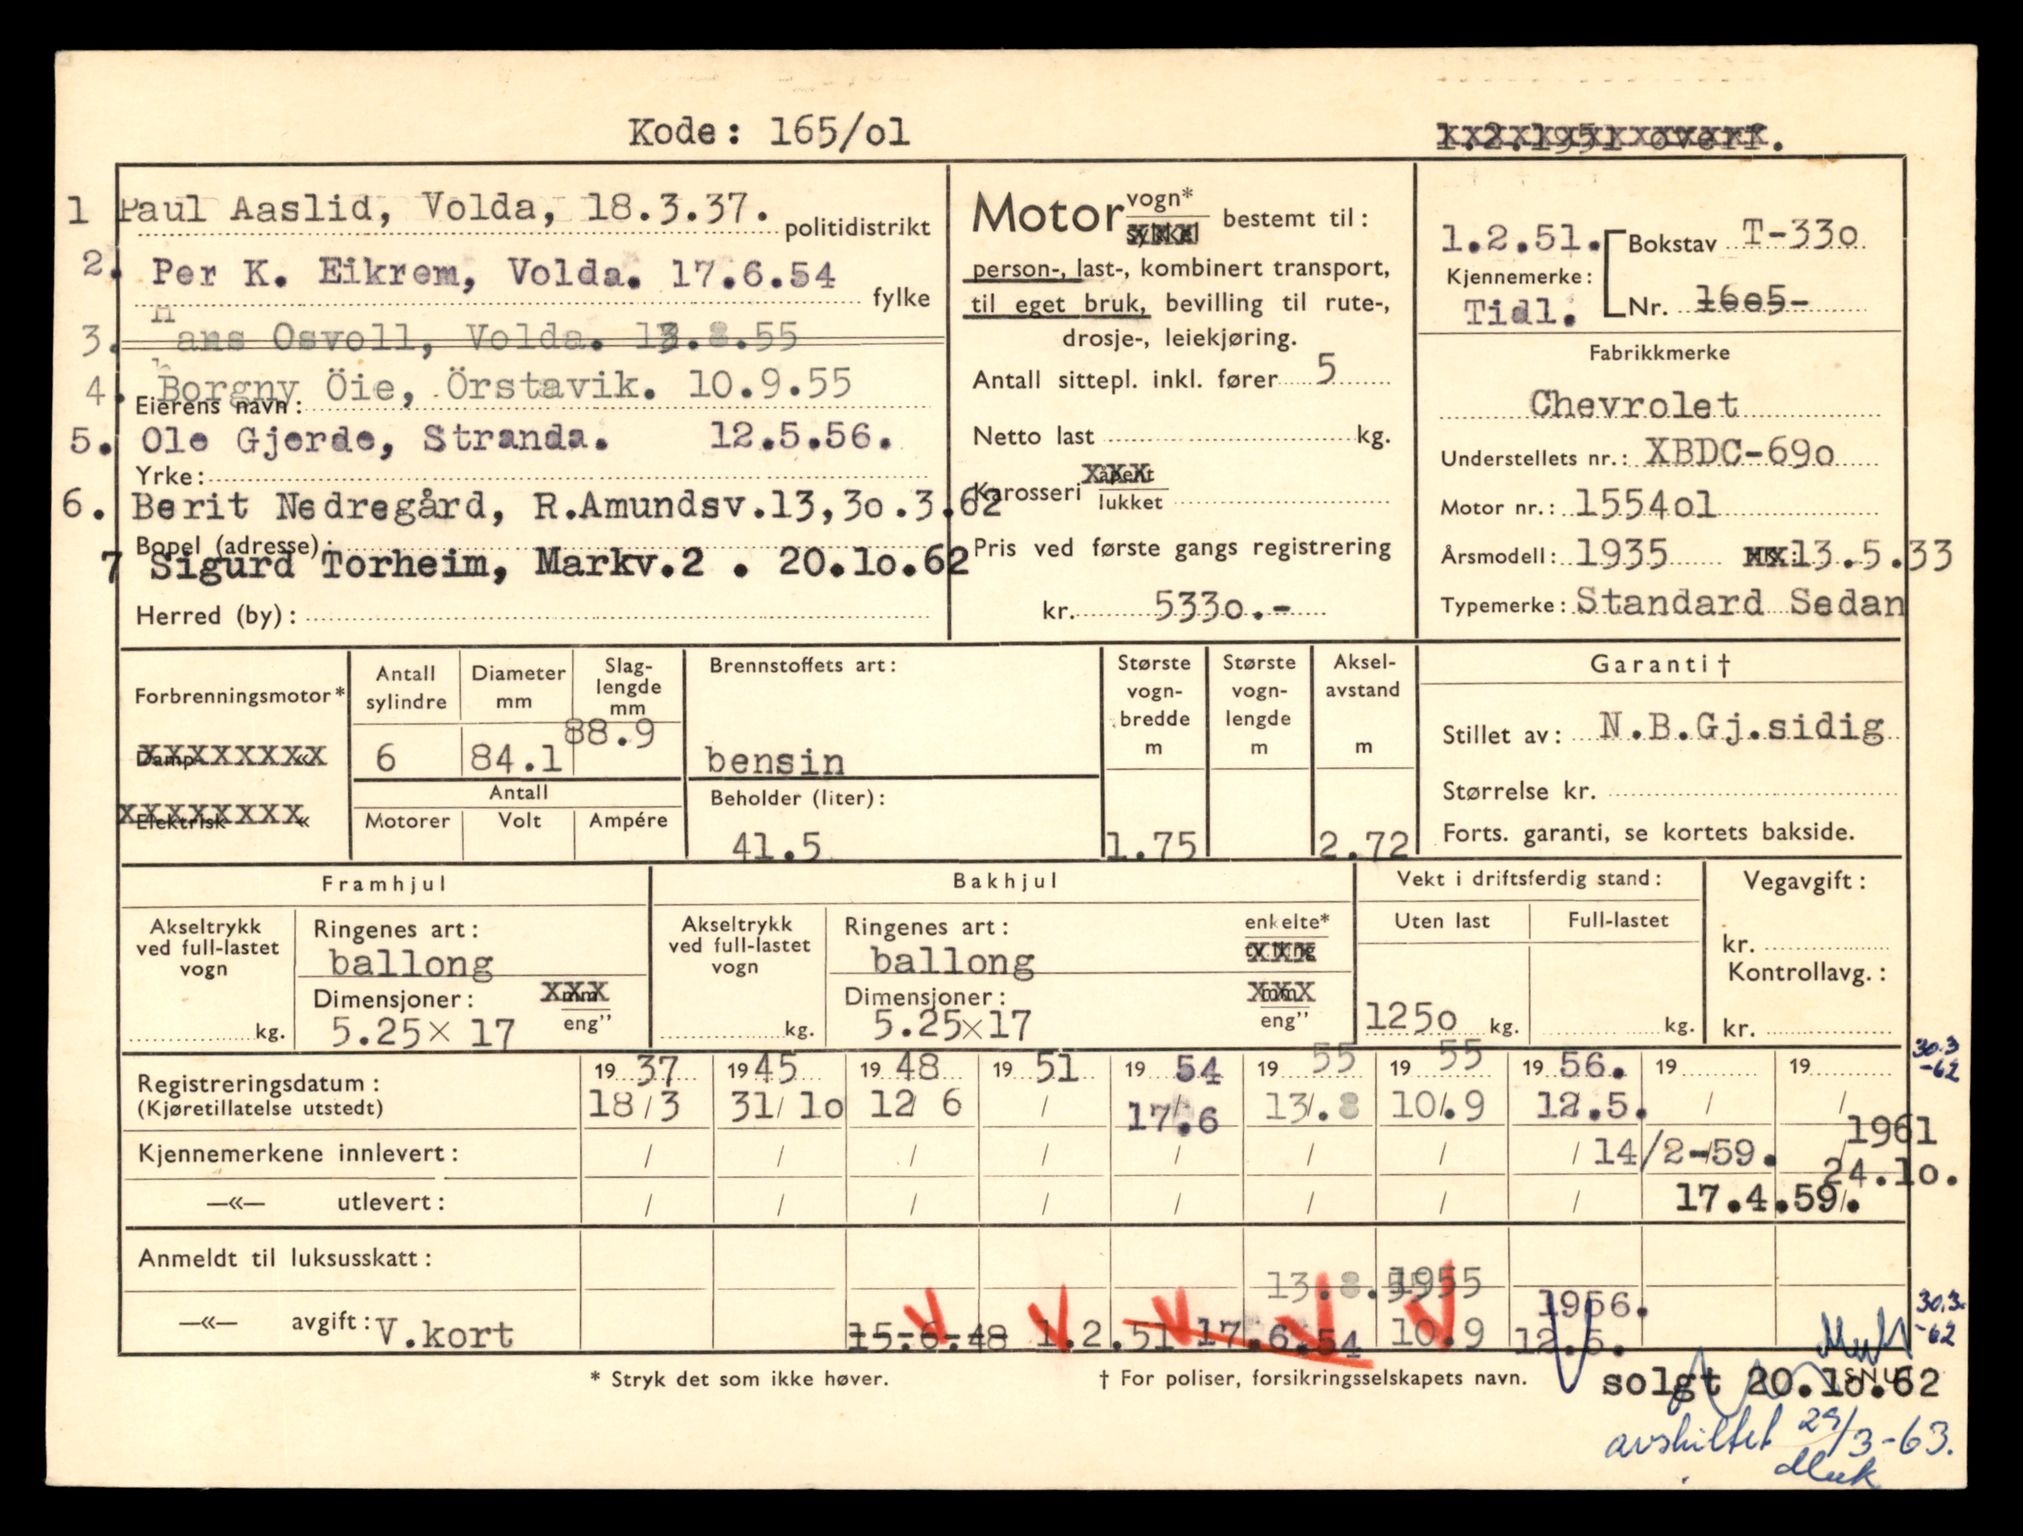 Kode: 165/ol
1.2.1951 overf.
1 Paul Aaslid, Volda, 18.3.37.
politidistrikt
2. Per K. Eikrem, Volda. 17.6.54
fylke
3. Hans Osvoll, Volda. 13.8.55
4. Borgny Öie, Örstavik. 10.9.55
Eierens navn:
5. Ole Gjerde, Stranda. 12.5.56.
Yrke:
6. Berit Nedregård, R.Amundsv.13,3o.3.62
Bopel (adresse):
7 Sigurd Torheim, Markv.2 . 20.lo.62
Herred (by):
Motor vogn* sykkel bestemt til:
person-, last-, kombinert transport,
til eget bruk, bevilling til rute-,
drosje-, leiekjøring.
Antall sittepl. inkl. fører 5
Netto last kg.
Karosseri åpent lukket
Pris ved første gangs registrering
kr. 533o.-
1.2.51. Bokstav T-33o
Kjennemerke:
Tidl. Nr. 16o5-
Fabrikkmerke
Chevrolet
Understellets nr.: XBDC-69o
Motor nr.: 1554ol
Årsmodell: 1935 HK: 13.5.33
Typemerke: Standard Sedan
Forbrenningsmotor*
Damp «
Elektrisk «
Antall sylindre
6
Diameter mm
84.1
Slag- lengde mm
88.9
Antall
Motorer Volt Ampére
Brennstoffets art:
bensin
Beholder (liter):
41.5
Største vogn- bredde m
1.75
Største vogn- lengde m
Aksel- avstand m
2.72
Garanti †
Stillet av: N.B.Gj.sidig
Størrelse kr.
Forts. garanti, se kortets bakside.
Framhjul
Akseltrykk ved full-lastet vogn
kg.
Ringenes art:
ballong
Dimensjoner: mm eng”
5.25 × 17
Bakhjul
Akseltrykk ved full-lastet vogn
kg.
Ringenes art: enkelte* tvilling
ballong
Dimensjoner: mm eng”
5.25 × 17
Vekt i driftsferdig stand:
Uten last Full-lastet
125o kg. kg.
Vegavgift:
kr.
Kontrollavg.:
kr.
Registreringsdatum: 19 37 19 45 19 48 19 51 19 54 19 55 19 55 19 56. 19 19 30.3 -62
(Kjøretillatelse utstedt) 18/3 31/lo 12/6 / 17/.6 13/.8 10/.9 12.5. / /
Kjennemerkene innlevert: / / / / / / / / 14/2-59. 1961 24.lo.
—«— utlevert: / / / / / / / / 17.4.59.
Anmeldt til luksusskatt:
13.8.55 1955
—«— avgift: V.kort 15-6-48 1.2.51 17.6.54 10.9 1956. 12.5. 30.3. -62
* Stryk det som ikke høver.
† For poliser, forsikringsselskapets navn.
solgt 20.lo.62
avskiltet 29/3-63.